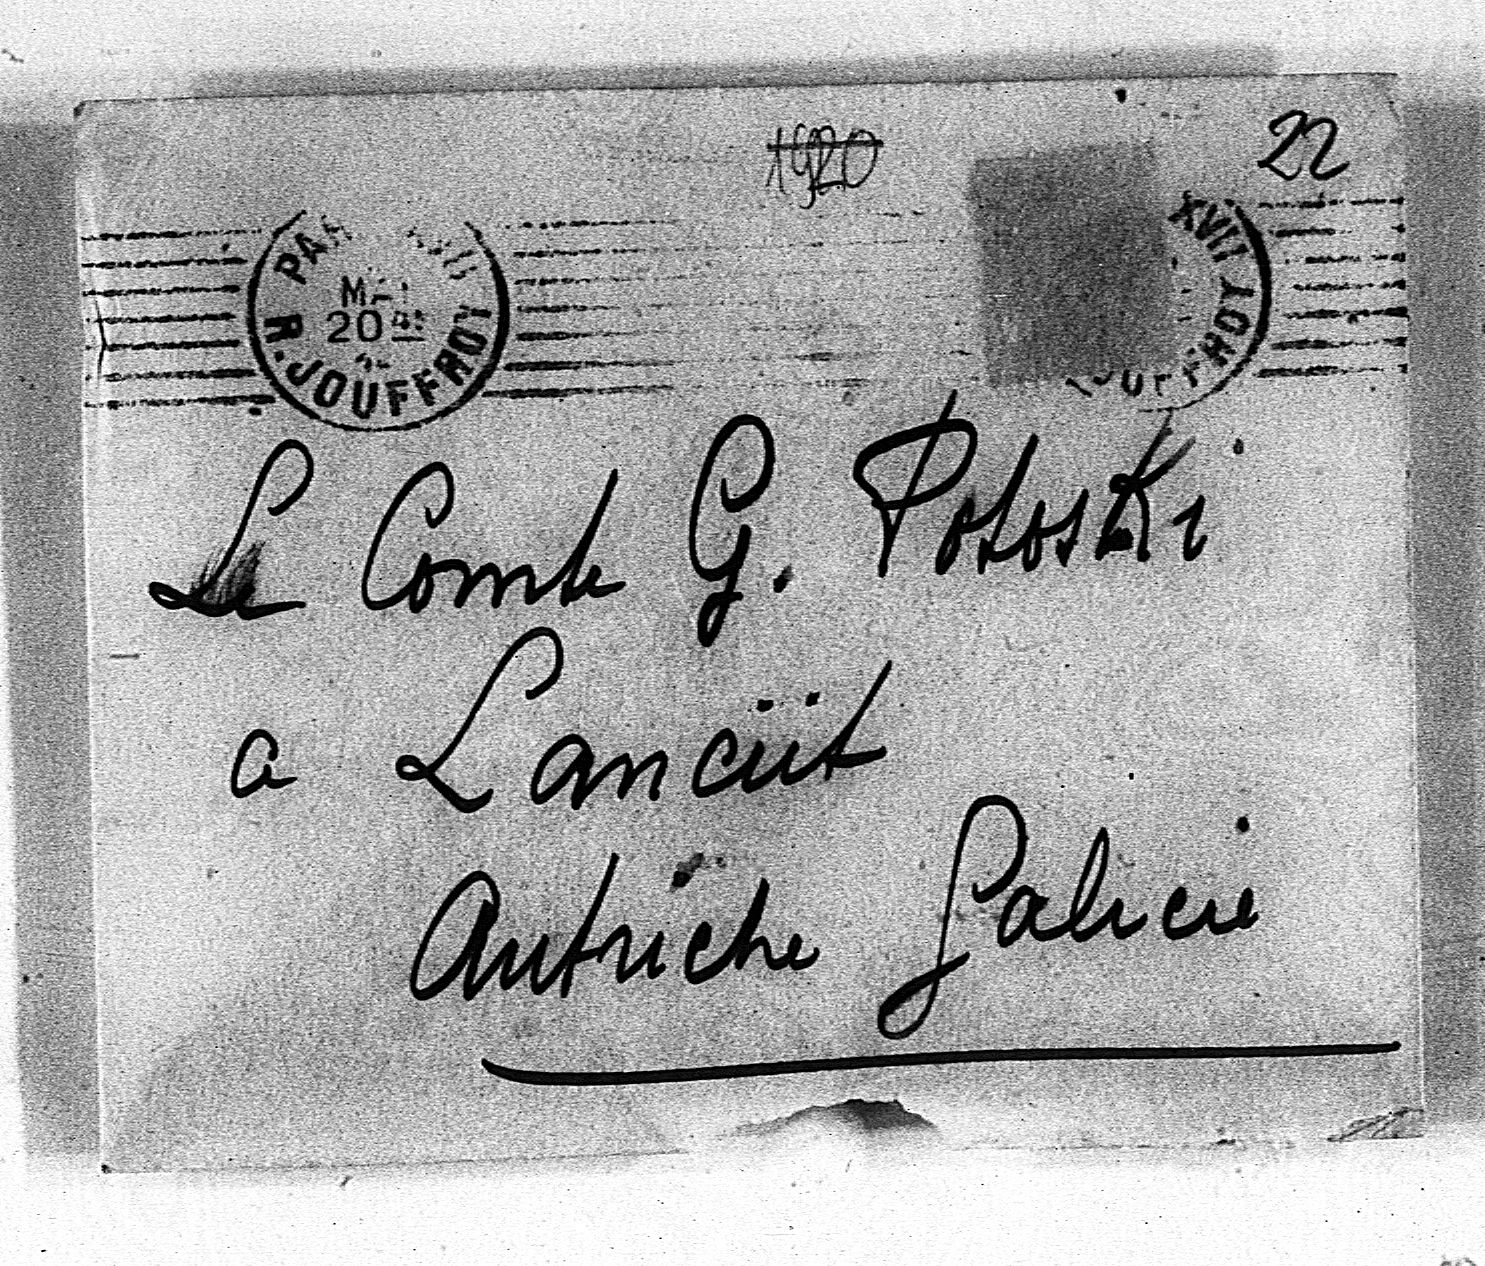 1920
22
PAR XVII
R. JOUFFROY
20
XVII
JOUFFROY
Le Comte G. Potoski
a Lancüt
Autriche Galicie